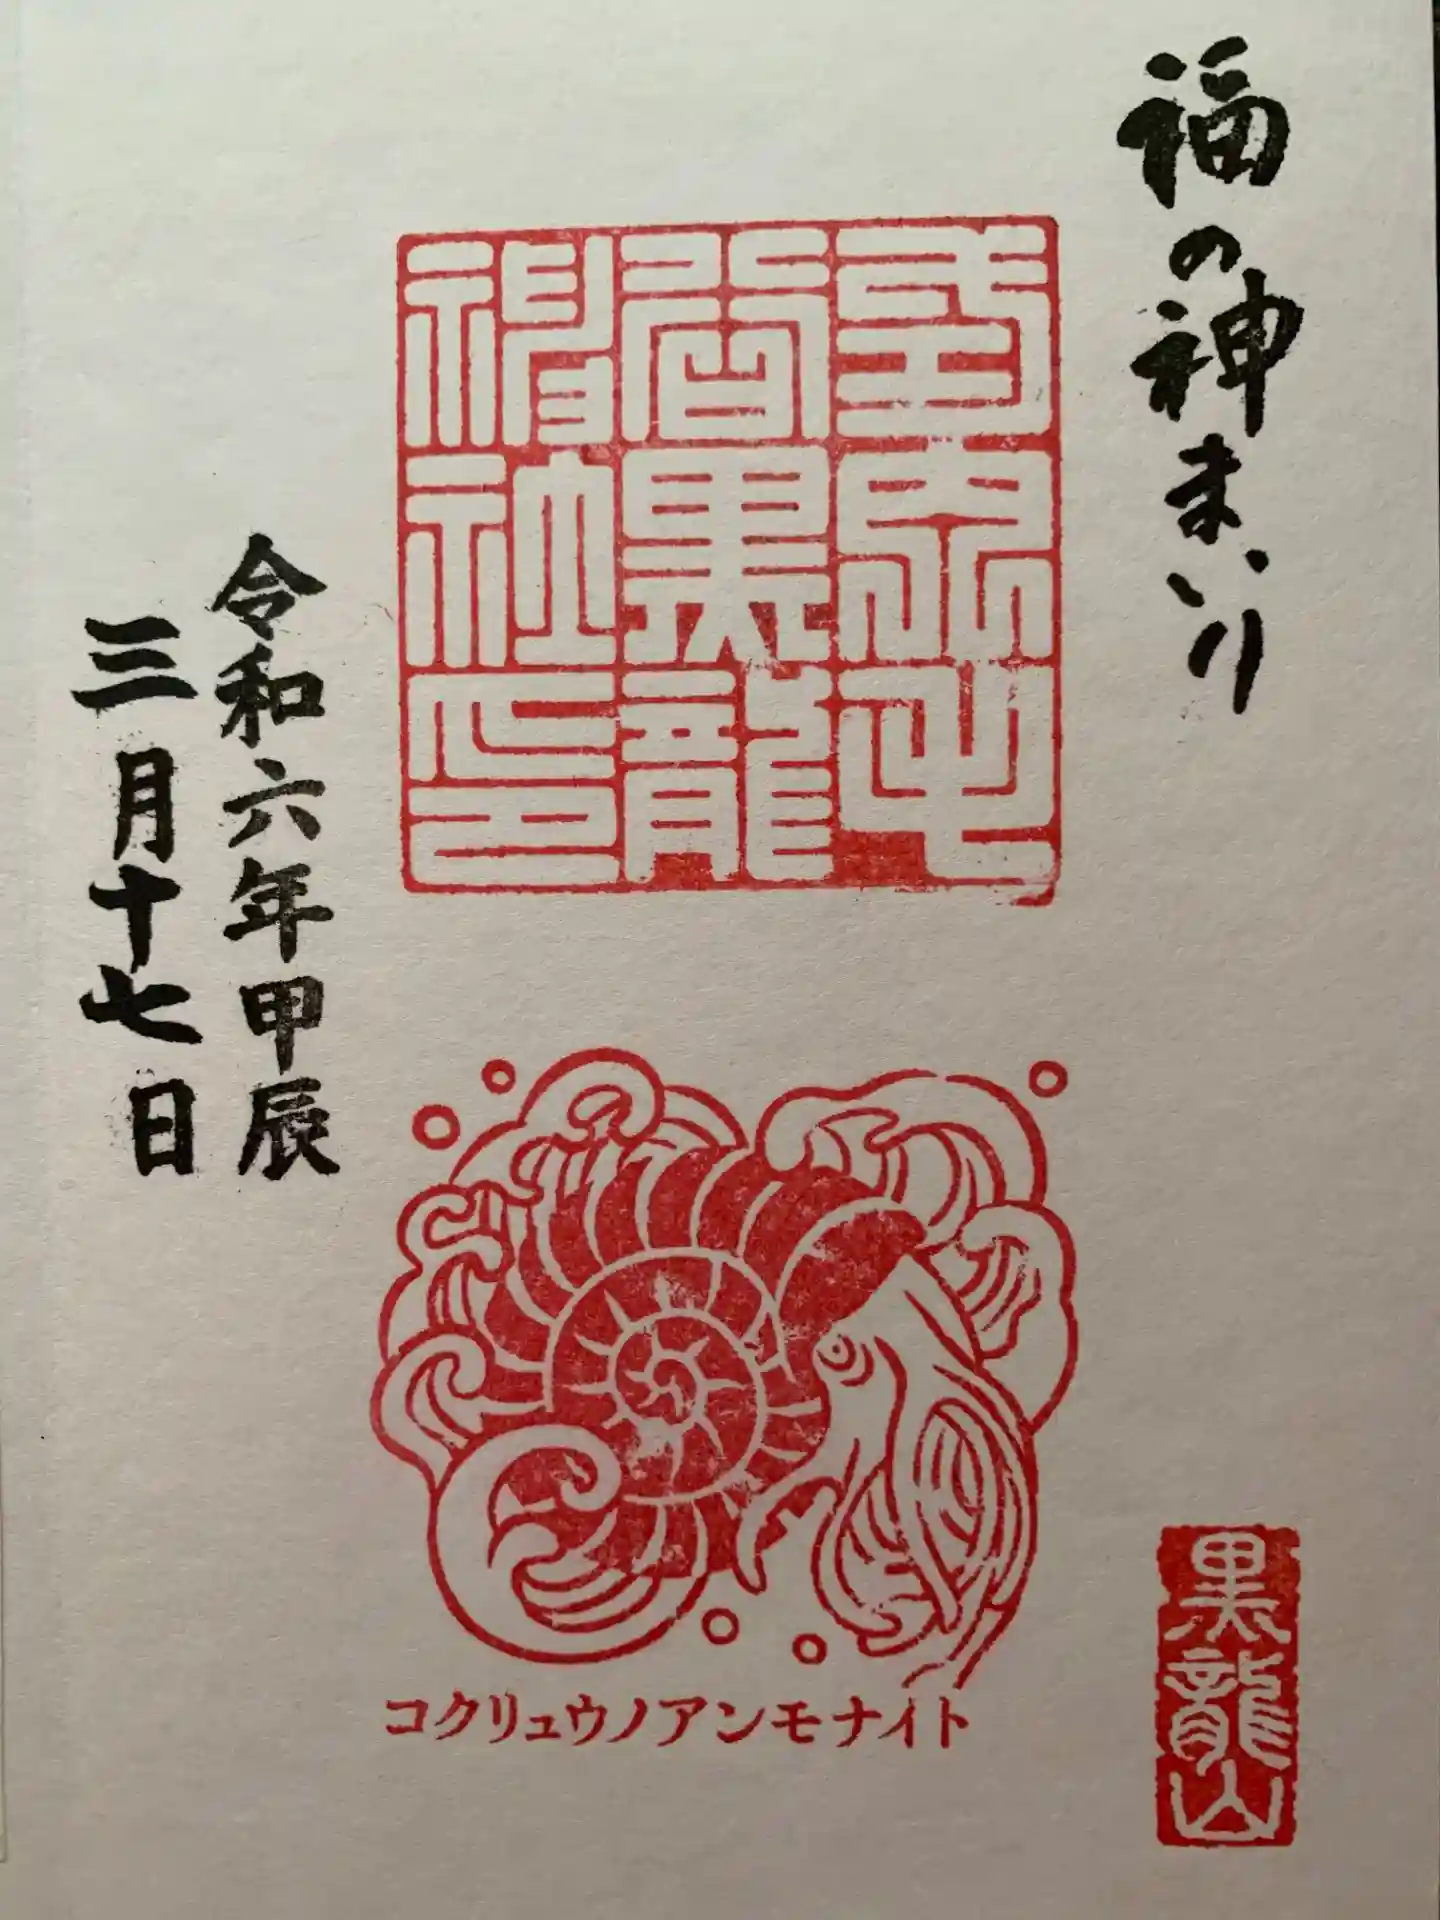 福の神まいり
黒龍
神社印
令和六年甲辰
三月十七日
コクリュウノアンモナイト
黒龍山